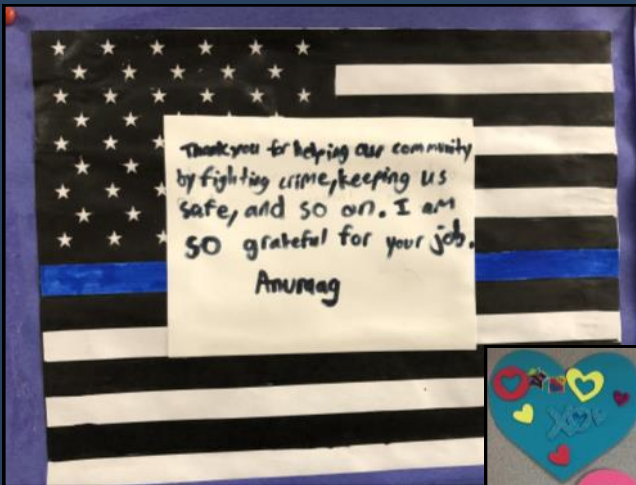 Thank you for helping our community
by fighting crime, keeping us
safe, and so on. I am
so grateful for your job.
Anuraag
XO